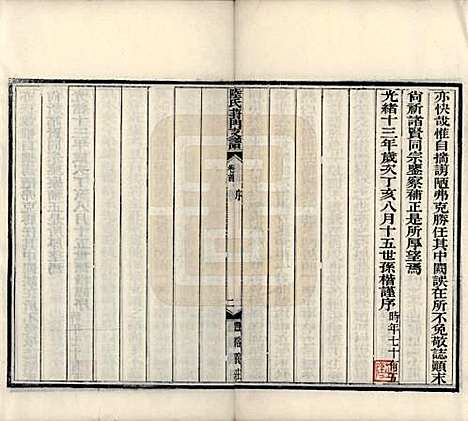 亦快哉惟自揣譾陋弗克勝任其中闕誤在所不免敬誌顚末
尙祈諸賢同宗鑒察補正是所厚望焉
光緒十三年歲次丁亥八月十五世孫楷謹序
時年七十有五
陸氏葑門支譜
卷首
序
二
豐裕義莊